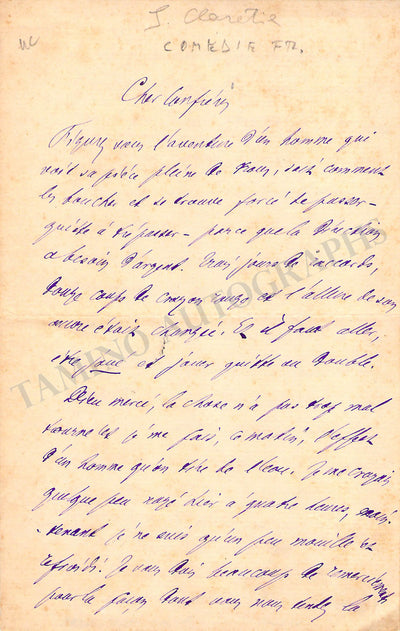 J. Claretie
COMEDIE FR.
Cher Confrère,
Figurez vous l'aventure d'un homme qui
voit sa pièce pleine de trous, sait comment
les boucher et se trouve forcé de passer -
quitte à trépasser - parce que la Direction
a besoin d'argent. Trois jours de raccords,
douze coups de crayon rouge et l'allure de son
œuvre était changée. Et il faut aller,
être joué et jouer quitte ou double.
Dieu merci, la chose n'a pas trop mal
tourné et je me fais, ce matin, l'effet
d'un homme qu'on tire de l'eau. Je me croyais
quelque peu noyé hier à quatre heures, main-
-tenant je ne suis qu'un peu mouillé et
refroidi. Je vous dois beaucoup de remerciements
pour la façon dont vous nous rendez la
TAMINO AUTOGRAPHS